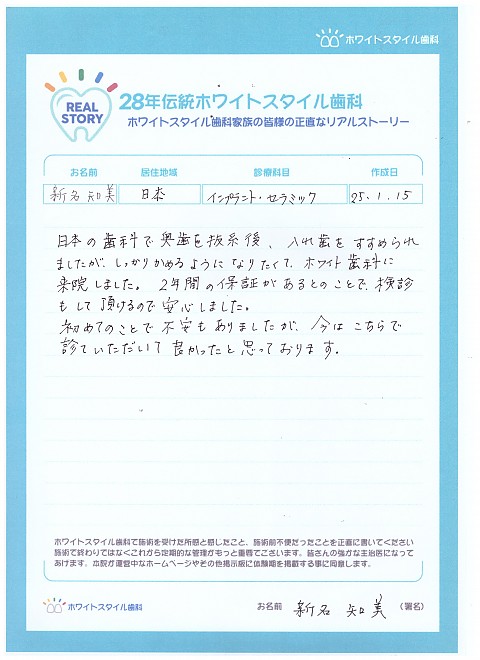 ホワイトスタイル歯科
REAL
STORY
28年伝統ホワイトスタイル歯科
ホワイトスタイル歯科家族の皆様の正直なリアルストーリー
お名前 居住地域 診療科目 作成日
新名 知美 日本 インプラント・セラミック 25.1.15
日本の歯科で奥歯を抜糸後、入れ歯をすすめられ
ましたが、しっかりかめるようになりたくて、ホワイト歯科に
来院しました。2年間の保証があるとのことで、検診
もして頂けるので安心しました。
初めてのことで不安もありましたが、今はこちらで
診ていただいて良かったと思っております。
ホワイトスタイル歯科で施術を受けた所感と感じたこと、施術前不便だったことを正直に書いてください
施術で終わりではなくこれから定期的な管理がもっと重要でございます。皆さんの強がな主治医になって
あげます。本院が運営中なホームページやその他掲示版に体験期を掲載する事に同意します。
ホワイトスタイル歯科 お名前 新名 知美 (署名)